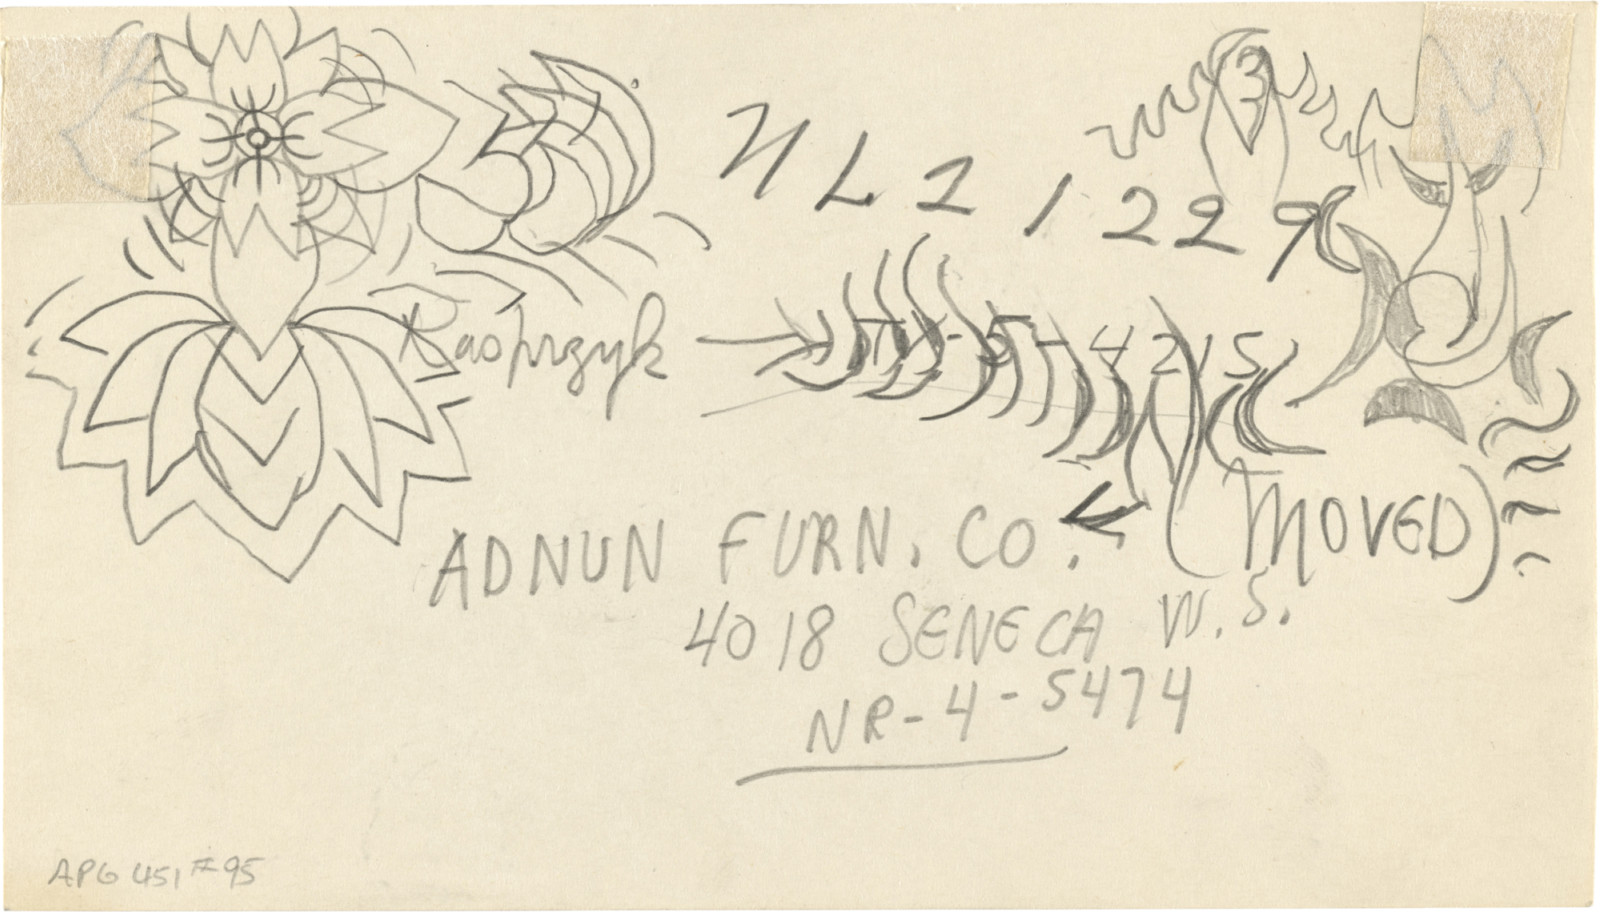 NL 2 1229
Kasprzyk → TW-5-4215
ADNUN FURN. CO. (MOVED)
4018 SENECA W.S.
NR-4-5474
APG 451 #95